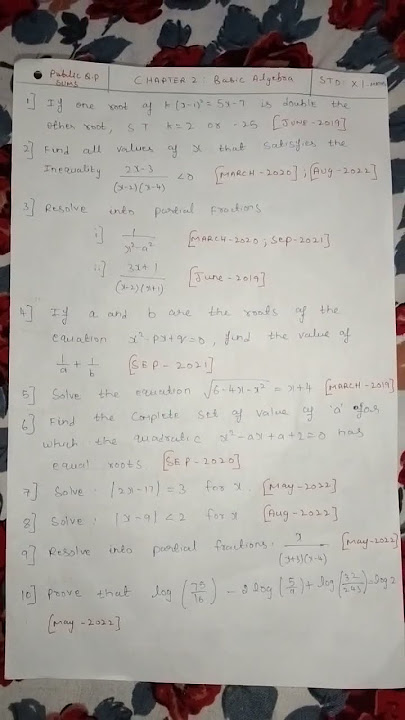 ● Public Q.P SUMS
CHAPTER 2 : Basic Algebra
STD : XI
1] If one root of k(x-1)² = 5x-7 is double the
other root, S T k=2 or -25 [JUNE-2019]
2] Find all values of x that satisfies the
Inequality (2x-3)/((x-2)(x-4)) <0 [MARCH-2020] ; [AUG-2022]
3] Resolve into partial fractions
i] 1/(x²-a²) [MARCH-2020 ; Sep-2021]
ii] (3x+1)/((x-2)(x+1)) [June-2019]
4] If a and b are the roots of the
equation x²-px+q=0, find the value of
1/a + 1/b [SEP-2021]
5] Solve the equation √(6-4x-x²) = x+4 [MARCH-2019]
6] Find the complete set of value of 'a' for
which the quadratic x²-ax+a+2=0 has
equal roots [SEP-2020]
7] Solve : |2x-17|=3 for x. [May-2022]
8] Solve : |x-9|<2 for x [Aug-2022]
9] Resolve into partial fractions. x/((x+3)(x-4)) [May-2022]
10] Prove that log(75/16) - 2log(5/9) + log(32/243) = log 2
[May-2022]